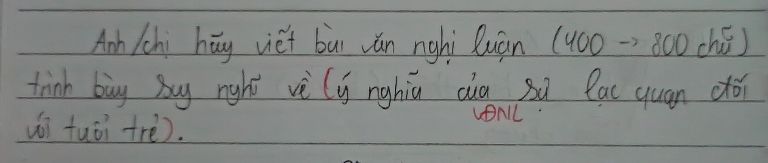 Anh/chị hãy viết bài văn nghị luận (400 -> 800 chữ)
trình bày suy nghĩ về (ý nghĩa của sự lạc quan đối
VĐNL
với tuổi trẻ).